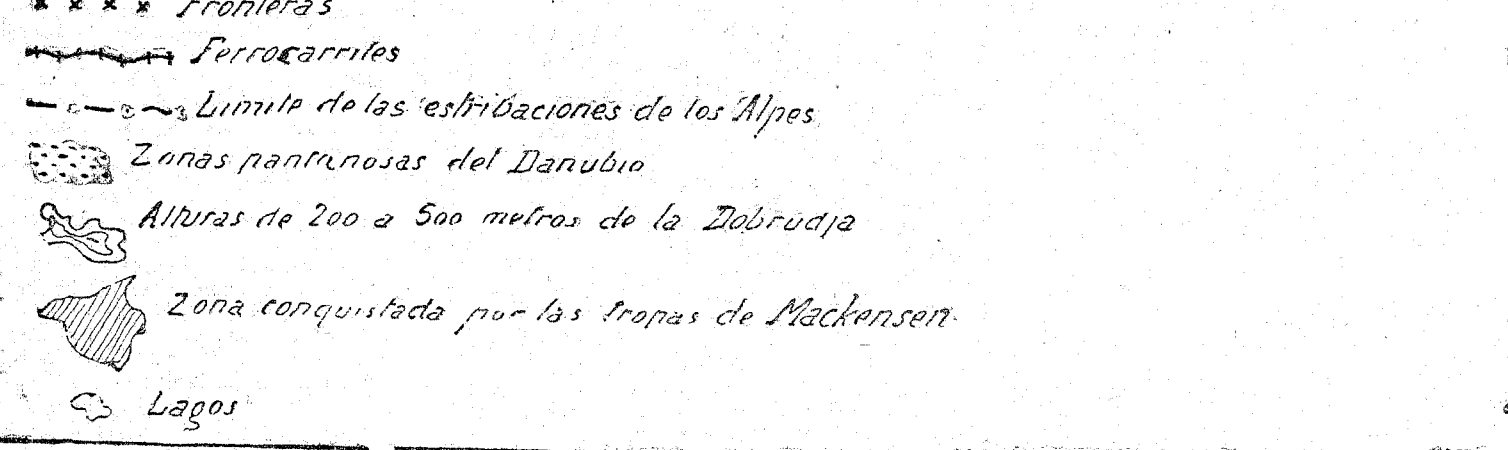 Fronteras
Ferrocarriles
Limite de las estribaciones de los Alpes
Zonas pantanosas del Danubio
Alturas de 200 a 500 metros de la Dobrudja
Zona conquistada por las tropas de Mackensen
Lagos